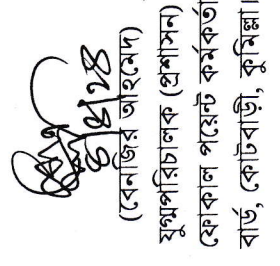 (বেনজির আহমেদ)
যুগ্মপরিচালক (প্রশাসন)
ফোকাল পয়েন্ট কর্মকর্তা
বার্ড, কোটবাড়ী, কুমিল্লা।